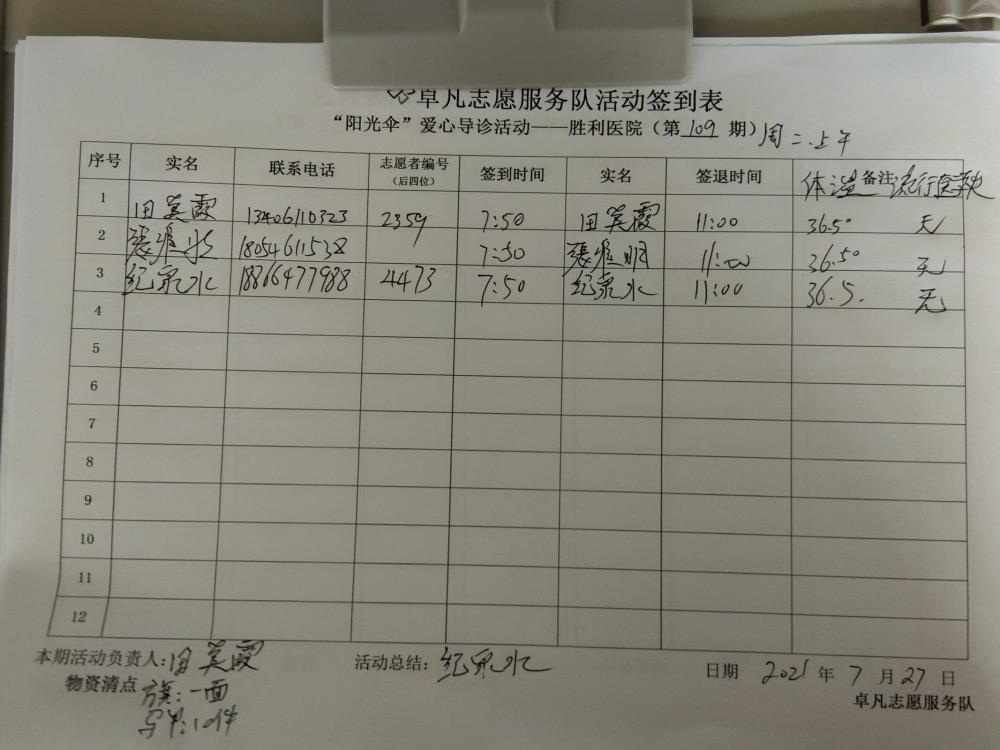 卓凡志愿服务队活动签到表
“阳光伞”爱心导诊活动——胜利医院（第109期）周二上午
序号 实名 联系电话 志愿者编号（后四位） 签到时间 实名 签退时间 体温 备注 流行医学史
1 田英霞 13406110323 2359 7:50 田英霞 11:00 36.5° 无
2 張惟明 18054611538 7:50 張惟明 11:00 36.5° 无
3 纪泉水 18866477988 4473 7:50 纪泉水 11:00 36.5. 无
4
5
6
7
8
9
10
11
12
本期活动负责人：田英霞 活动总结：纪泉水 日期 2021年7月27日
物资清点 旗：一面 卓凡志愿服务队
10件